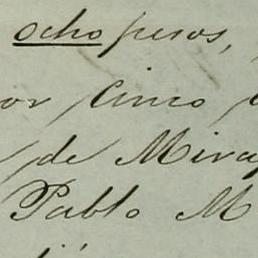 ocho pesos,
or cinco
de Mira
Pablo M